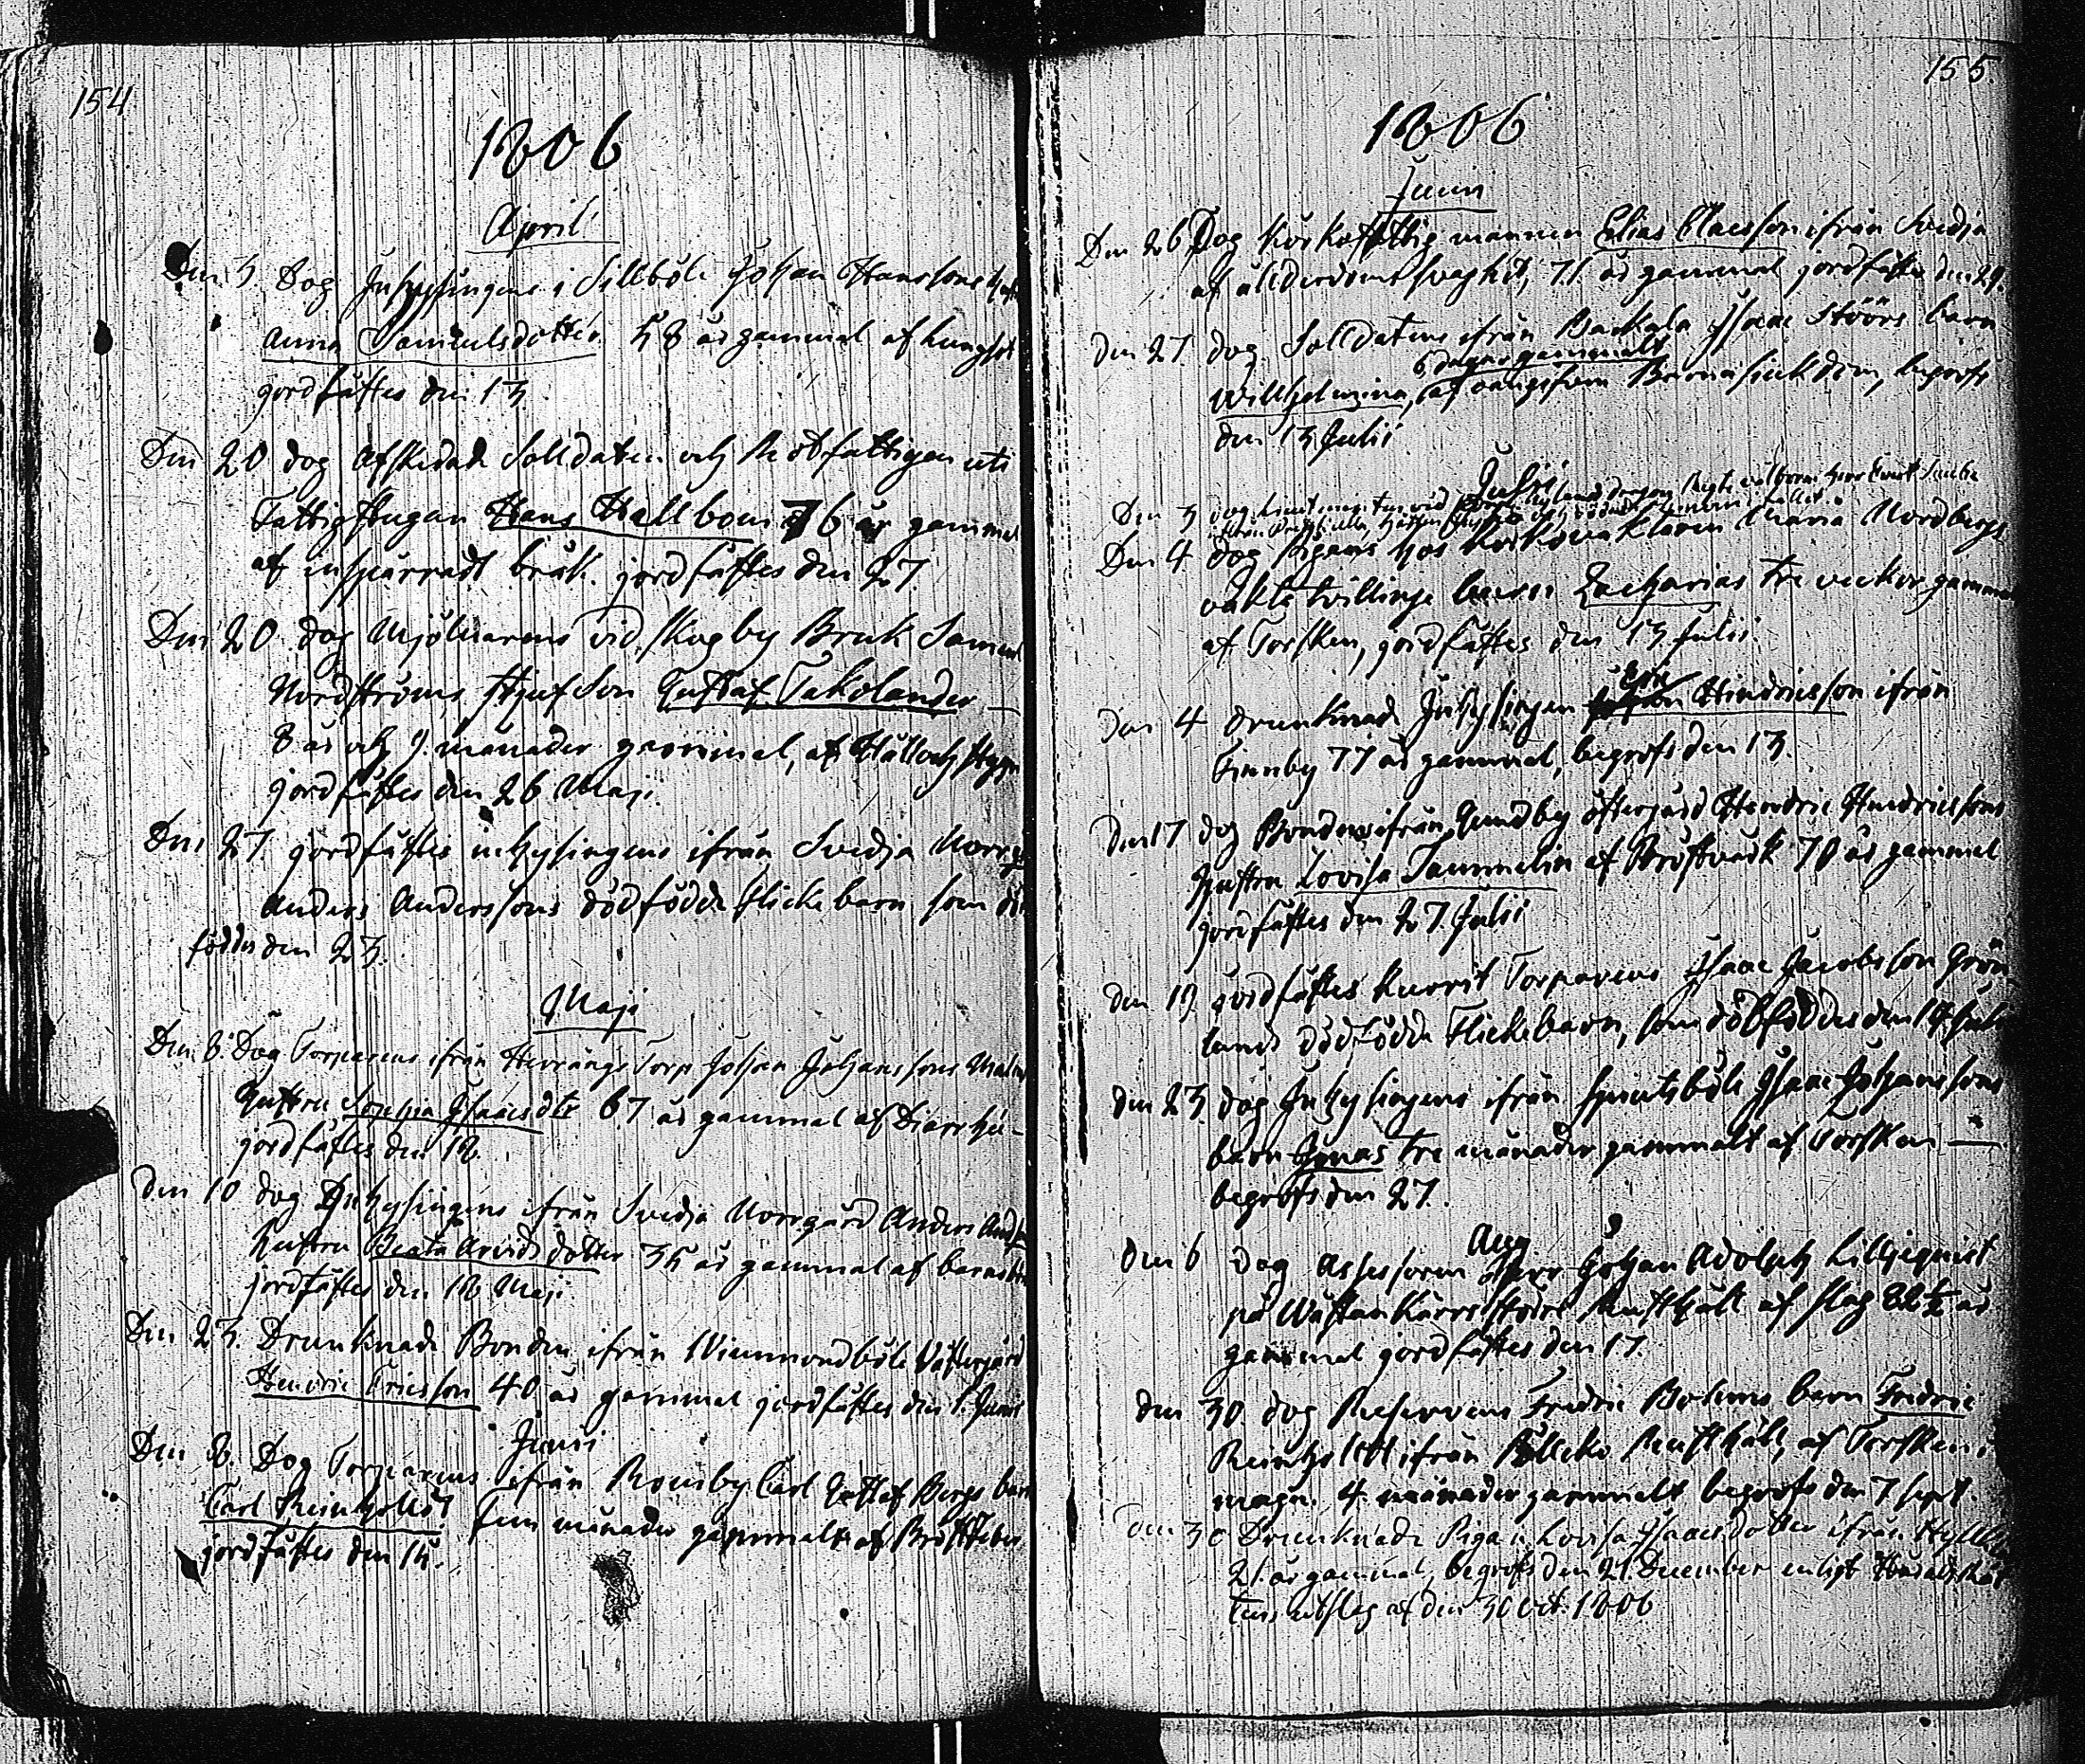 154
1806
April
Den 3 Dog Inhysingens i Sillböle Johan Hanssons
Anna Samuelsdotter 58 år gammal af lungsot
jordfästes den 13
Den 20 dog Afskedade Solldaten och Rotfattigen uti
Fattigstugan Hans Hallbom 76 år gammal
af inspärradt bråk. jordfästes den 27
Den 20. dog Mjölnarens vid Skogby Bruk Samuel
Nordströms Stjuf Son Gustaf Takolander
8 år och 9. månader gammal, af Håll och Styng
jordfästes den 26 Maji.
Den 27 jordfästes inhysingens ifrån Svedja Norrgd
Anders Anderssons dödfödda Flickebarn som
föddes den 23.
Maji
Den 8. Dog Torparens ifrån Herrängs Torp Johan Johanssons
hustru Sophia Isaacsdtr 67 år gammal af Diarrhé
jordfästes den 18
den 10 dog Inhysingens ifrån Svedja Norrgård Anders
hustru Beata Arvidsdotter 35 år gammal af
jordfästes den 18 Maji
Den 23. Drunknade Bonden ifrån Vimmondböle Västergård
Hendric Ericsson 40 år gammal jordfästes den 1. Junii
Junii
Den 8. Dog Torparens ifrån Romsby Carl Gustaf Bergs barn
Carl Reinholdt fem månader gammalt af Bröstfeber
jordfästes den 15.
155
1806
Junii
Den 26 Dog Kyrkofattig mannen Elias Claesson ifrån Svedja
af ållderdoms svaghet, 71. år gammal jordfästes den 29.
den 27 dog Solldatens ifrån Backala Isaac Stöörs barn
6 dagar gammalt
Willhelmina, af Barnasiukdom, begrofs
den 13 Julii
Julii
Den 3 dog
Den 4 dog Pigans hos Maria Nordbergs
oäkta tvillinge barn Zacharias tre veckor gammal
af Torsken, jordfästes den 13 Julii.
Eric
den 4 drunknade Inhysingen Hindricsson ifrån
Finnby 77 år gammal, begrofs den 13.
den 17 dog Bondens ifrån Gundby östergård Hendric Hindricssons
hustru Lovisa Tammelin af Bröstvärk 70 år gammal
jordfästes den 27. Julii
den 19. jordfästes Torparens Isaac Jacobsson Grön
lunds dödfödda Flickebarn, som dödföddes den Juli
den 23. dog Inhysingens ifrån Isaac Johanssons
barn Jonas tre månader gammalt af Torsken
begrofs den 27.
Aug
den 6 dog Assessoren Herr Johan Adolph Lilljequist
på Wästankärrs Rusthåll af slag 82 1/2 år
gammal jordfästes den 17.
den 30 dog Reservens Fredric Bohms barn Fredric
Reinholdt ifrån Rusthåll, af Torsken i
magen 4 månader gammalt begrofs den 7 Sept
den 30 Drunknade Pigan Lovisa Isaacsdotter ifrån
21 år gammal, begrofs den 21. December enligt Härads Rät
tens utslag af den 30 Oct. 1806